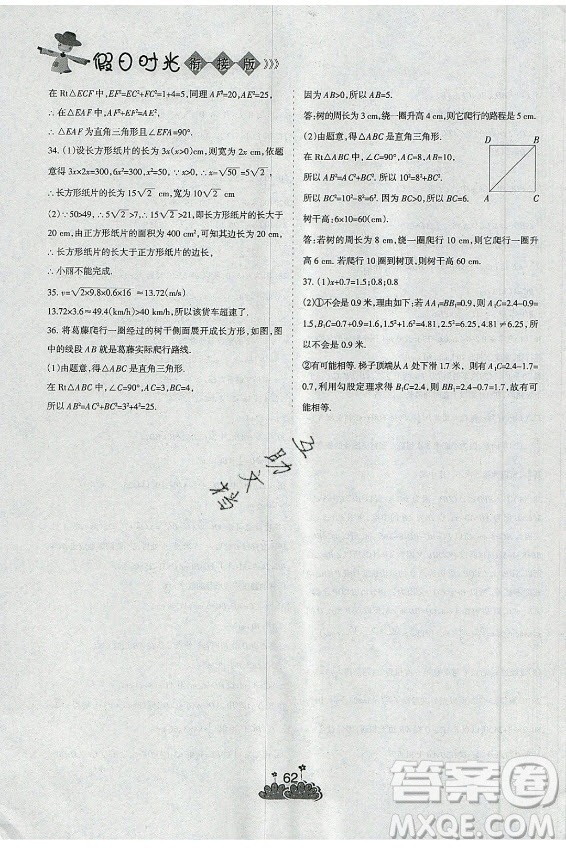 假日时光 衔接版 》》》
在 Rt△ECF 中,EF²=EC²+FC²=1+4=5,同理 AF²=20,AE²=25,
∴ 在△EAF 中,AF²+EF²=AE²,
∴ △EAF 为直角三角形且∠EFA=90°.
34. (1)设长方形纸片的长为 3x(x>0)cm,则宽为 2x cm,依题
意得 3x×2x=300,6x²=300,x²=50,∵x>0,∴x=√50=5√2,
∴ 长方形纸片的长为 15√2 cm,宽为 10√2 cm.
(2)∵50>49,∴5√2>7,∴15√2>21,即长方形纸片的长大于
20 cm,由正方形纸片的面积为 400 cm²,可知其边长为 20 cm,
∴ 长方形纸片的长大于正方形纸片的边长,
∴ 小丽不能完成.
35. v=√2×9.8×0.6×16≈13.72(m/s)
13.72×3.6≈49.4(km/h)>40(km/h),所以该货车超速了.
36. 将葛藤爬行一圈经过的树干侧面展开成长方形,如图,图
中的线段 AB 就是葛藤实际爬行路线.
(1)由题意,得△ABC 是直角三角形.
在 Rt△ABC 中,∠C=90°,AC=3,BC=4.
所以 AB²=AC²+BC²=3²+4²=25.
因为 AB>0,所以 AB=5.
答:树的周长为 3 cm,绕一圈升高 4 cm,则它爬行的路程是 5 cm.
(2)由题意,得△ABC 是直角三角形.
在 Rt△ABC 中,∠C=90°,AC=8,AB=10.
所以 AB²=AC²+BC². 所以 10²=8²+BC².
所以 BC²=10²-8². 因为 BC>0,所以 BC=6.
树干高:6×10=60(cm).
答:若树的周长为 8 cm,绕一圈爬行 10 cm,则爬行一圈升高
6 cm. 如果爬行 10 圈到树顶,则树干高 60 cm.
D B
A C
37. (1)x+0.7=1.6;0.8;0.8
(2)①不会是 0.9 米,理由如下:若 AA₁=BB₁=0.9,则 A₁C=2.4-0.9=
1.5,B₁C=0.7+0.9=1.6,1.5²+1.6²=4.81,2.5²=6.25,∵A₁C²+B₁C²≠A₁B₁²,
所以不会是 0.9 米.
②有可能相等. 梯子顶端从 A 处下滑 1.7 米, 则有 A₁C=2.4-1.7=
0.7,利用勾股定理求得 B₁C=2.4,则 BB₁=2.4-0.7=1.7,故有可
能相等.
互助文档
62
答案圈
MXQE.COM